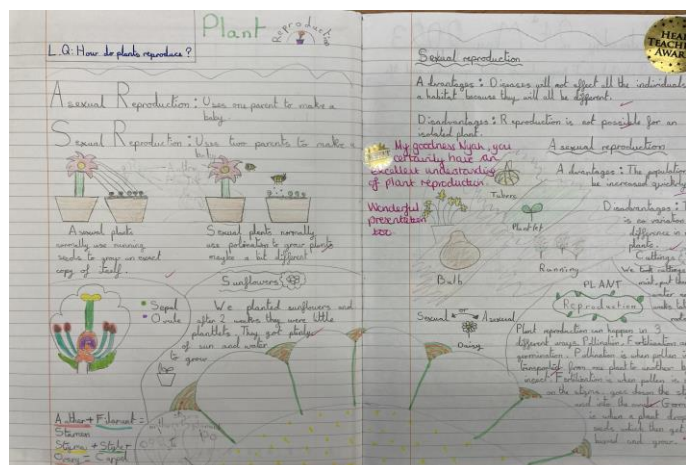 Plant
Reproduction
L.Q: How do plants reproduce?
Asexual Reproduction: Uses one parent to make a
baby
Sexual Reproduction: Uses two parents to make a
baby
Asexual plants
normally use running
seeds to grow an exact
copy of itself.
Sexual plants normally
use polination to grow plants
maybe a bit different
Sunflowers
We planted sunflowers and
after 2 weeks they were little
plantlets. They got plenty
of sun and water
to grow.
Sepal
Ovule
Anther + Filament =
Stamen
Stigma + Style +
Ovary = Carpel
HEAD
TEACHER
AWARD
Sexual reproduction
Advantages: Diseases will not effect all the individuals
a habitat because they will all be different.
Disadvantages: Reproduction is not possible for an
isolated plant.
My goodness Nyah, you
certainly have an
excellent understanding
of plant reproduction.
Wonderful
presentation
too.
Tubers
Plantlet
Bulb
Running
Asexual reproduction
Advantages: The population
be increased quickly
Disadvantages:
is no variation
difference in
plants.
Cuttings
We took cuttings
mint, put them
water
weeks
PLANT
Reproduction
Sexual or Asexual
Plant reproduction can happen in 3
different ways. Pollination, Fertilisation and
germination. Pollination is when pollen is
transported from one plant to another by
insect. Fertilisation is when pollen is
on the stigma, goes down the
and into the
is when a plant drops
seeds which then get
and grow.